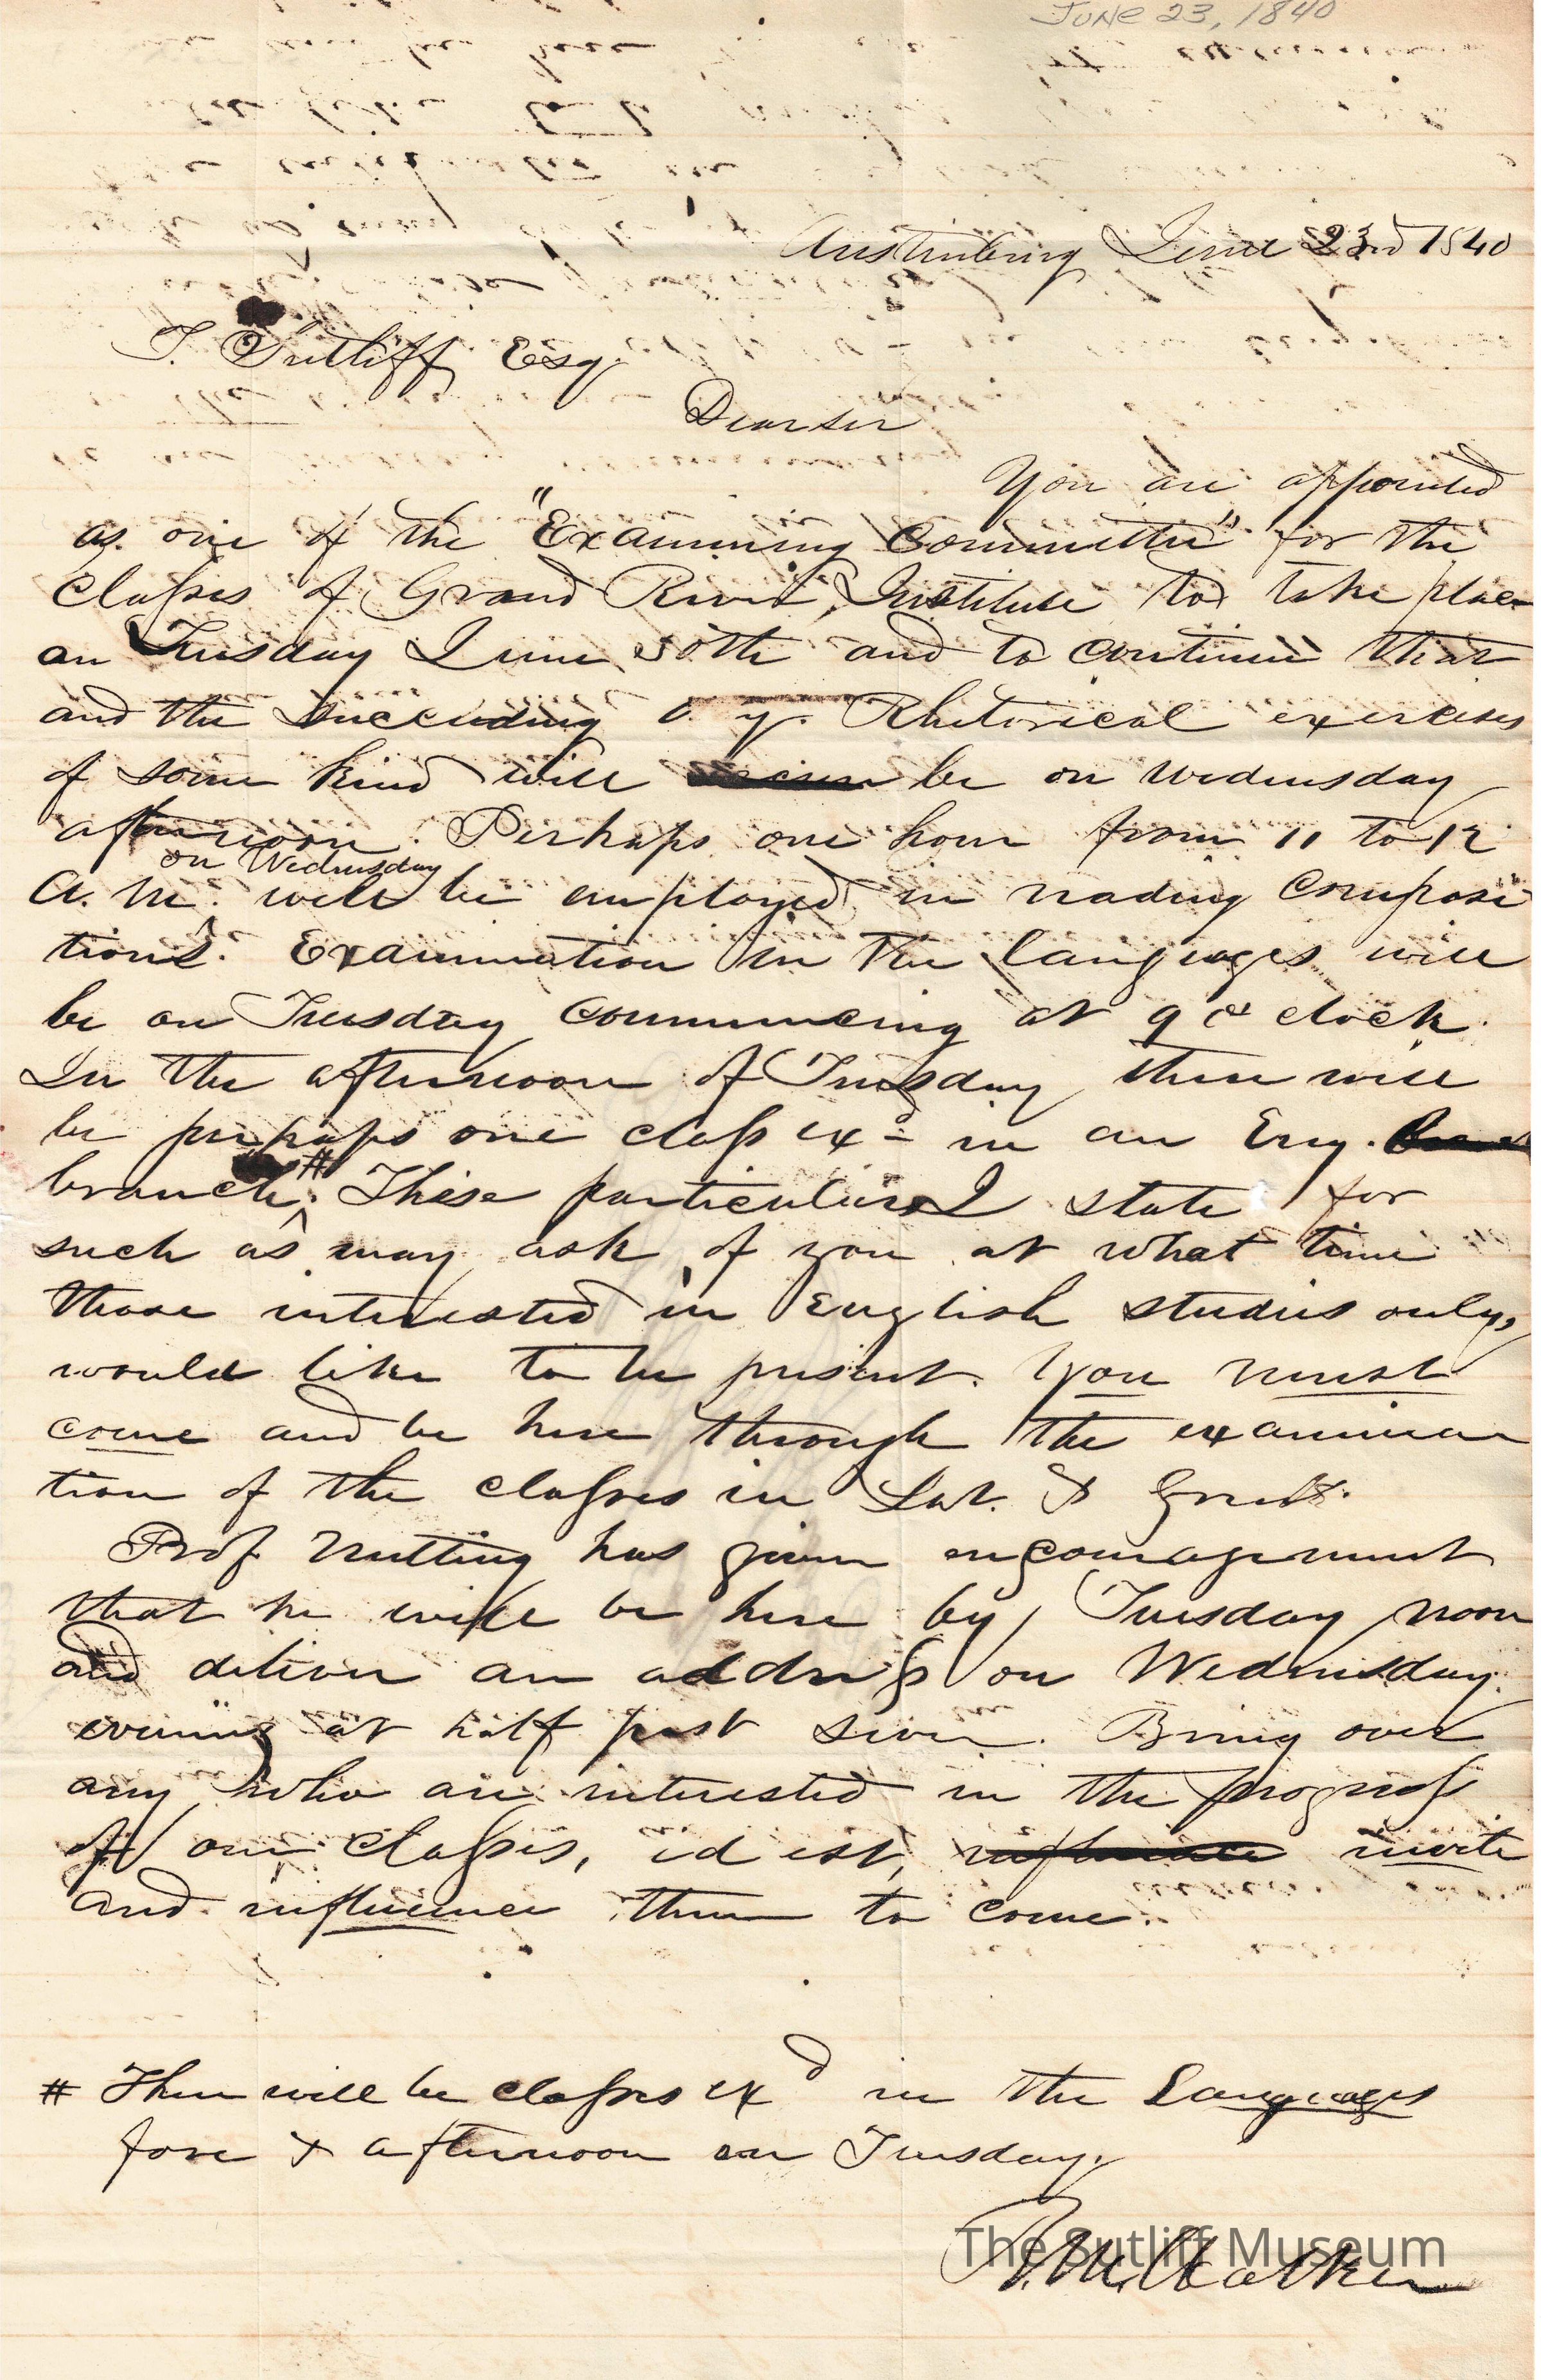 JUNE 23, 1840
Austinburg June 23rd 1840
T. Sutliff Esq.
Dear sir
You are appointed
as one of the "Examining Committee" for the
classes of Grand River Institute to take place
on Tuesday June 30th and to continue that
and the succeeding d y. Rhetorical exercises
of some kind will be on Wednesday
afternoon. Perhaps one hour from 11 to 12
on Wednesday
A. M. will be employed in reading Composi
tions. Examination in the languages will
be on Tuesday commencing at 9 o clock.
In the afternoon of Tuesday there will
be perhaps one class ex- in an Eng.
branch. # These particulars I state for
such as may ask of you at what time
those interested in English studies only,
would like to be present. You must
come and be here through the examina
tion of the classes in Lat. & Greek.
Prof Nutting has given encouragement
that he will be here by Tuesday noon
and deliver an address on Wednesday
evening at half past seven. Bring over
any who are interested in the progress
of our classes, id est, influence invite
and influence them to come.
# There will be classes exd in the Languages
fore & afternoon on Tuesday.
The Sutliff Museum
Walker